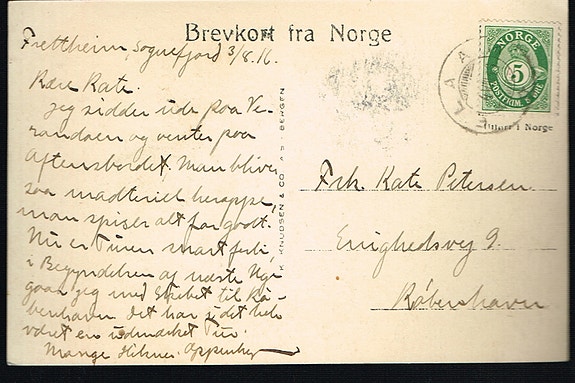 Brevkort fra Norge
Frettheim, Sognefjord 3/8.16.
Kære Kate.
Jeg sidder ude paa Ve-
randaen og venter paa
Aftensbordet. Man bliver
saa madteriel heroppe,
man spiser alt for godt.
Nu er Turen snart forbi,
i Begyndelsen af næste Uge
gaar jeg med Skibet til Kø-
benhavn. Det har i det hele
været en udmærket Tur.
Mange Hilsner.
KNUDSEN & CO A/S BERGEN
NORGE
5
POSTFRIM. 5 ØRE
Frk. Kate Petersen
Enighedsvej 9.
København